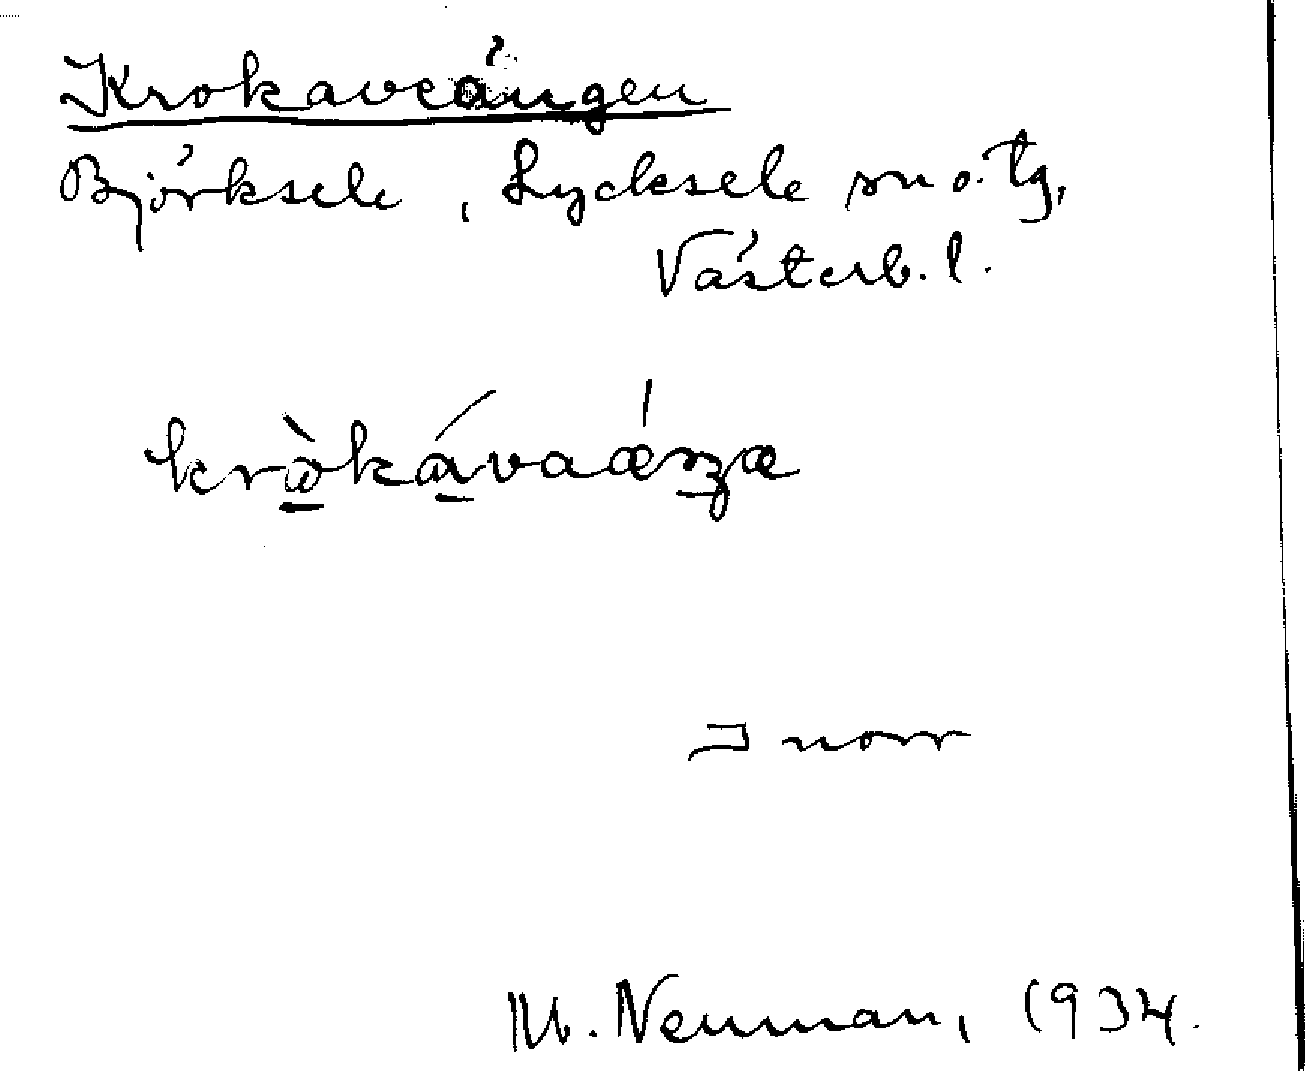 Krokaveängen
Björksele, Lycksele sn o. tg,
Västerb. l.
I norr
M. Neuman, 1934.